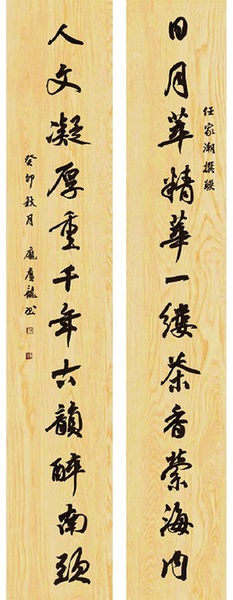 任家潮撰聯
日月萃精華一縷茶香縈海内
人文凝厚重千年古韻醉南頭
癸卯秋月